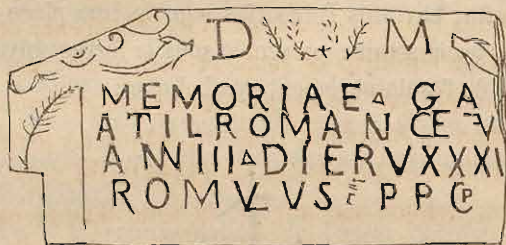 D M
MEMORIAE GA
ATILROMANCE V
ANNIIII DIERVXXXI
ROMVLVS E P P